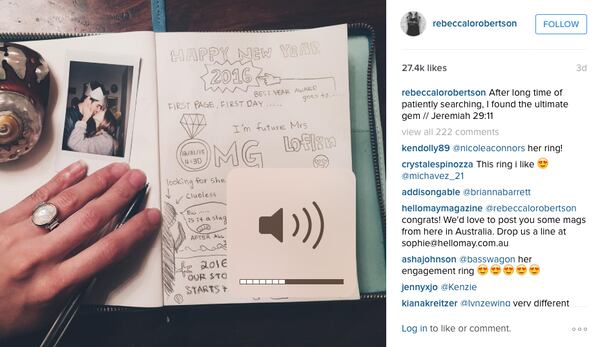 HAPPY NEW YEAR
2016
BEST YEAR AWARD
goes to....
FIRST PAGE, FIRST DAY.....
I'm future Mrs
12/31/15
4:30
OMG
looking for
clueless
AFTER ALL
2016
OUR STO
STARTS
rebeccalorobertson
FOLLOW
27.4k likes
3d
rebeccalorobertson After long time of
patiently searching, I found the ultimate
gem // Jeremiah 29:11
view all 222 comments
kendolly89 @nicoleaconnors her ring!
crystalespinozza This ring i like 😍
@michavez_21
addisongable @briannabarrett
hellomaymagazine @rebeccalorobertson
congrats! We'd love to post you some mags
from here in Australia. Drop us a line at
sophie@hellomay.com.au
ashajohnson @basswagon her
engagement ring 😍😍😍😍😍
jennyxjo @Kenzie
kianakreitzer @lynzewing very different
Log in to like or comment.